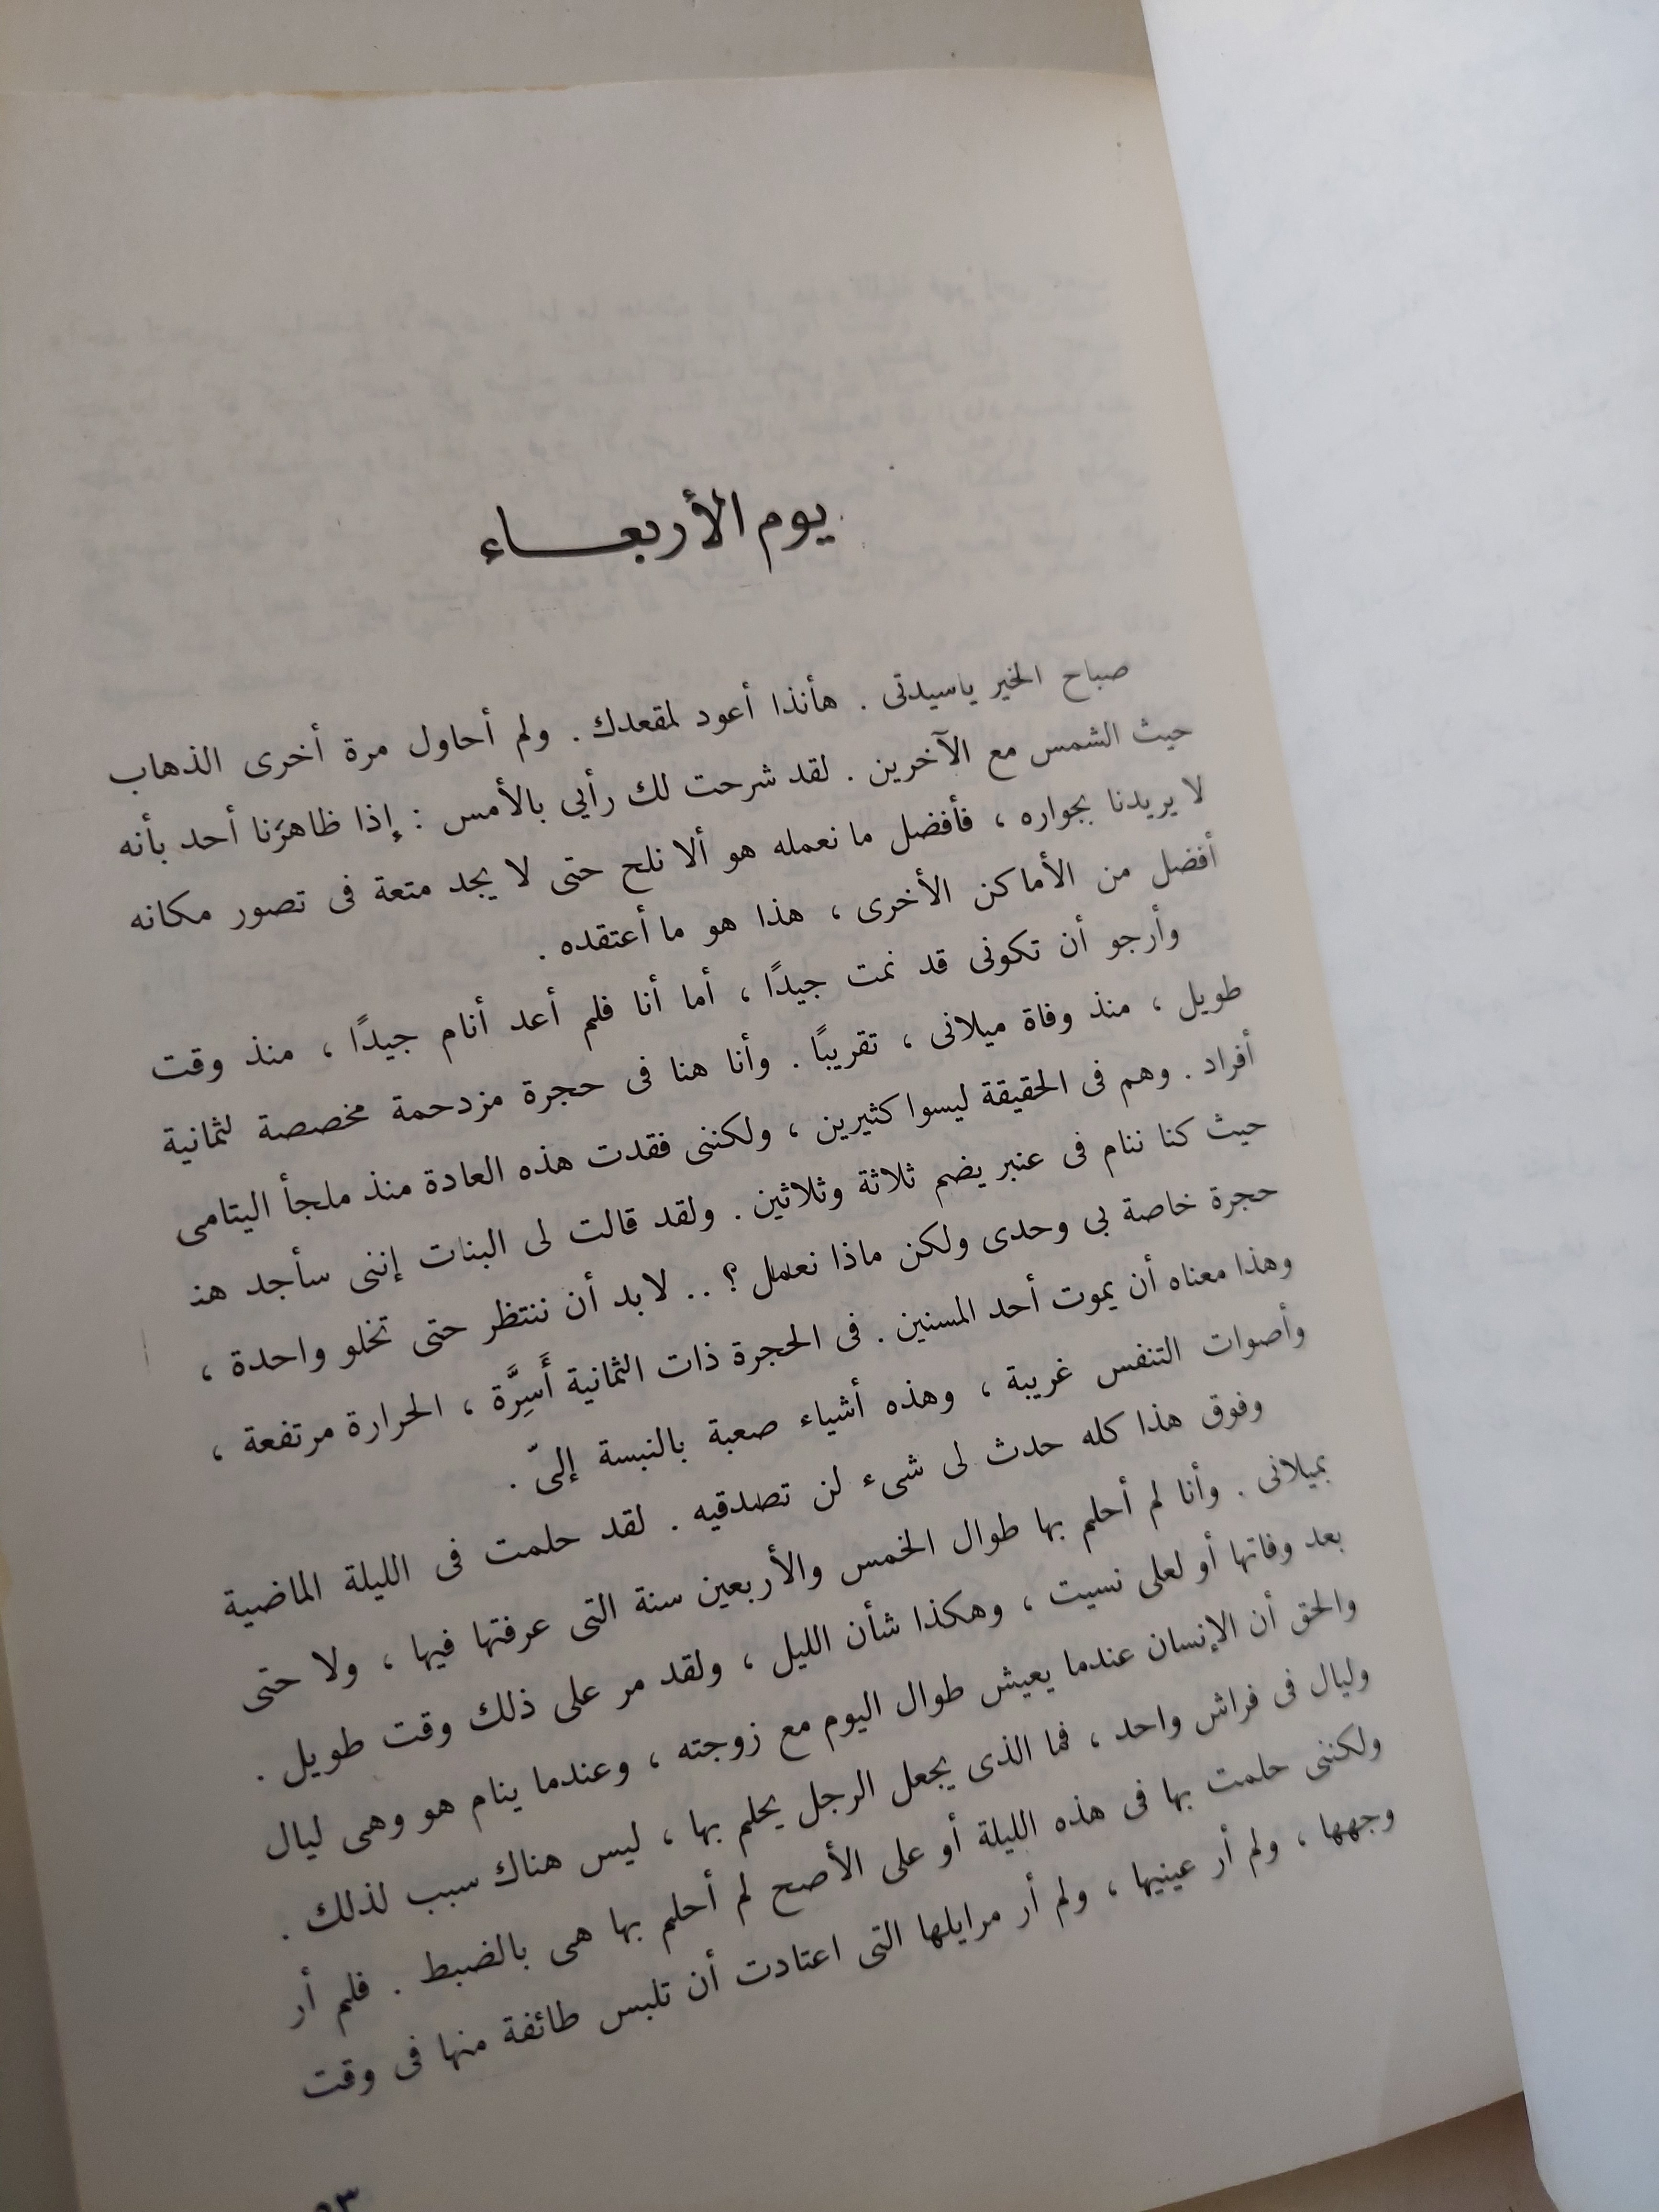 يوم الأربعـــاء
صباح الخير ياسيدتى . هأنذا أعود لمقعدك . ولم أحاول مرة أخرى الذهاب
حيث الشمس مع الآخرين . لقد شرحت لك رأيي بالأمس : إذا ظاهَرَنا أحد بأنه
لا يريدنا بجواره ، فأفضل ما نعمله هو ألا نلح حتى لا يجد متعة فى تصور مكانه
أفضل من الأماكن الأخرى ، هذا هو ما أعتقده .
وأرجو أن تكونى قد نمت جيدًا ، أما أنا فلم أعد أنام جيدًا ، منذ وقت
طويل ، منذ وفاة ميلانى ، تقريبًا . وأنا هنا فى حجرة مزدحمة مخصصة لثمانية
أفراد . وهم فى الحقيقة ليسوا كثيرين ، ولكننى فقدت هذه العادة منذ ملجأ اليتامى
حيث كنا ننام فى عنبر يضم ثلاثة وثلاثين . ولقد قالت لى البنات إننى سأجد هنـ
حجرة خاصة بى وحدى ولكن ماذا نعمل ؟ .. لابد أن ننتظر حتى تخلو واحدة ،
وهذا معناه أن يموت أحد المسنين . فى الحجرة ذات الثمانية أَسِرَّة ، الحرارة مرتفعة ،
وأصوات التنفس غريبة ، وهذه أشياء صعبة بالنبسة إلىّ .
وفوق هذا كله حدث لى شىء لن تصدقيه . لقد حلمت فى الليلة الماضية
بميلانى . وأنا لم أحلم بها طوال الخمس والأربعين سنة التى عرفتها فيها ، ولا حتى
بعد وفاتها أو لعلى نسيت ، وهكذا شأن الليل ، ولقد مر على ذلك وقت طويل .
والحق أن الإنسان عندما يعيش طوال اليوم مع زوجته ، وعندما ينام هو وهى ليال
وليال فى فراش واحد ، فما الذى يجعل الرجل يحلم بها ، ليس هناك سبب لذلك .
ولكننى حلمت بها فى هذه الليلة أو على الأصح لم أحلم بها هى بالضبط . فلم أر
وجهها ، ولم أر عينيها ، ولم أر مرايلها التى اعتادت أن تلبس طائفة منها فى وقت